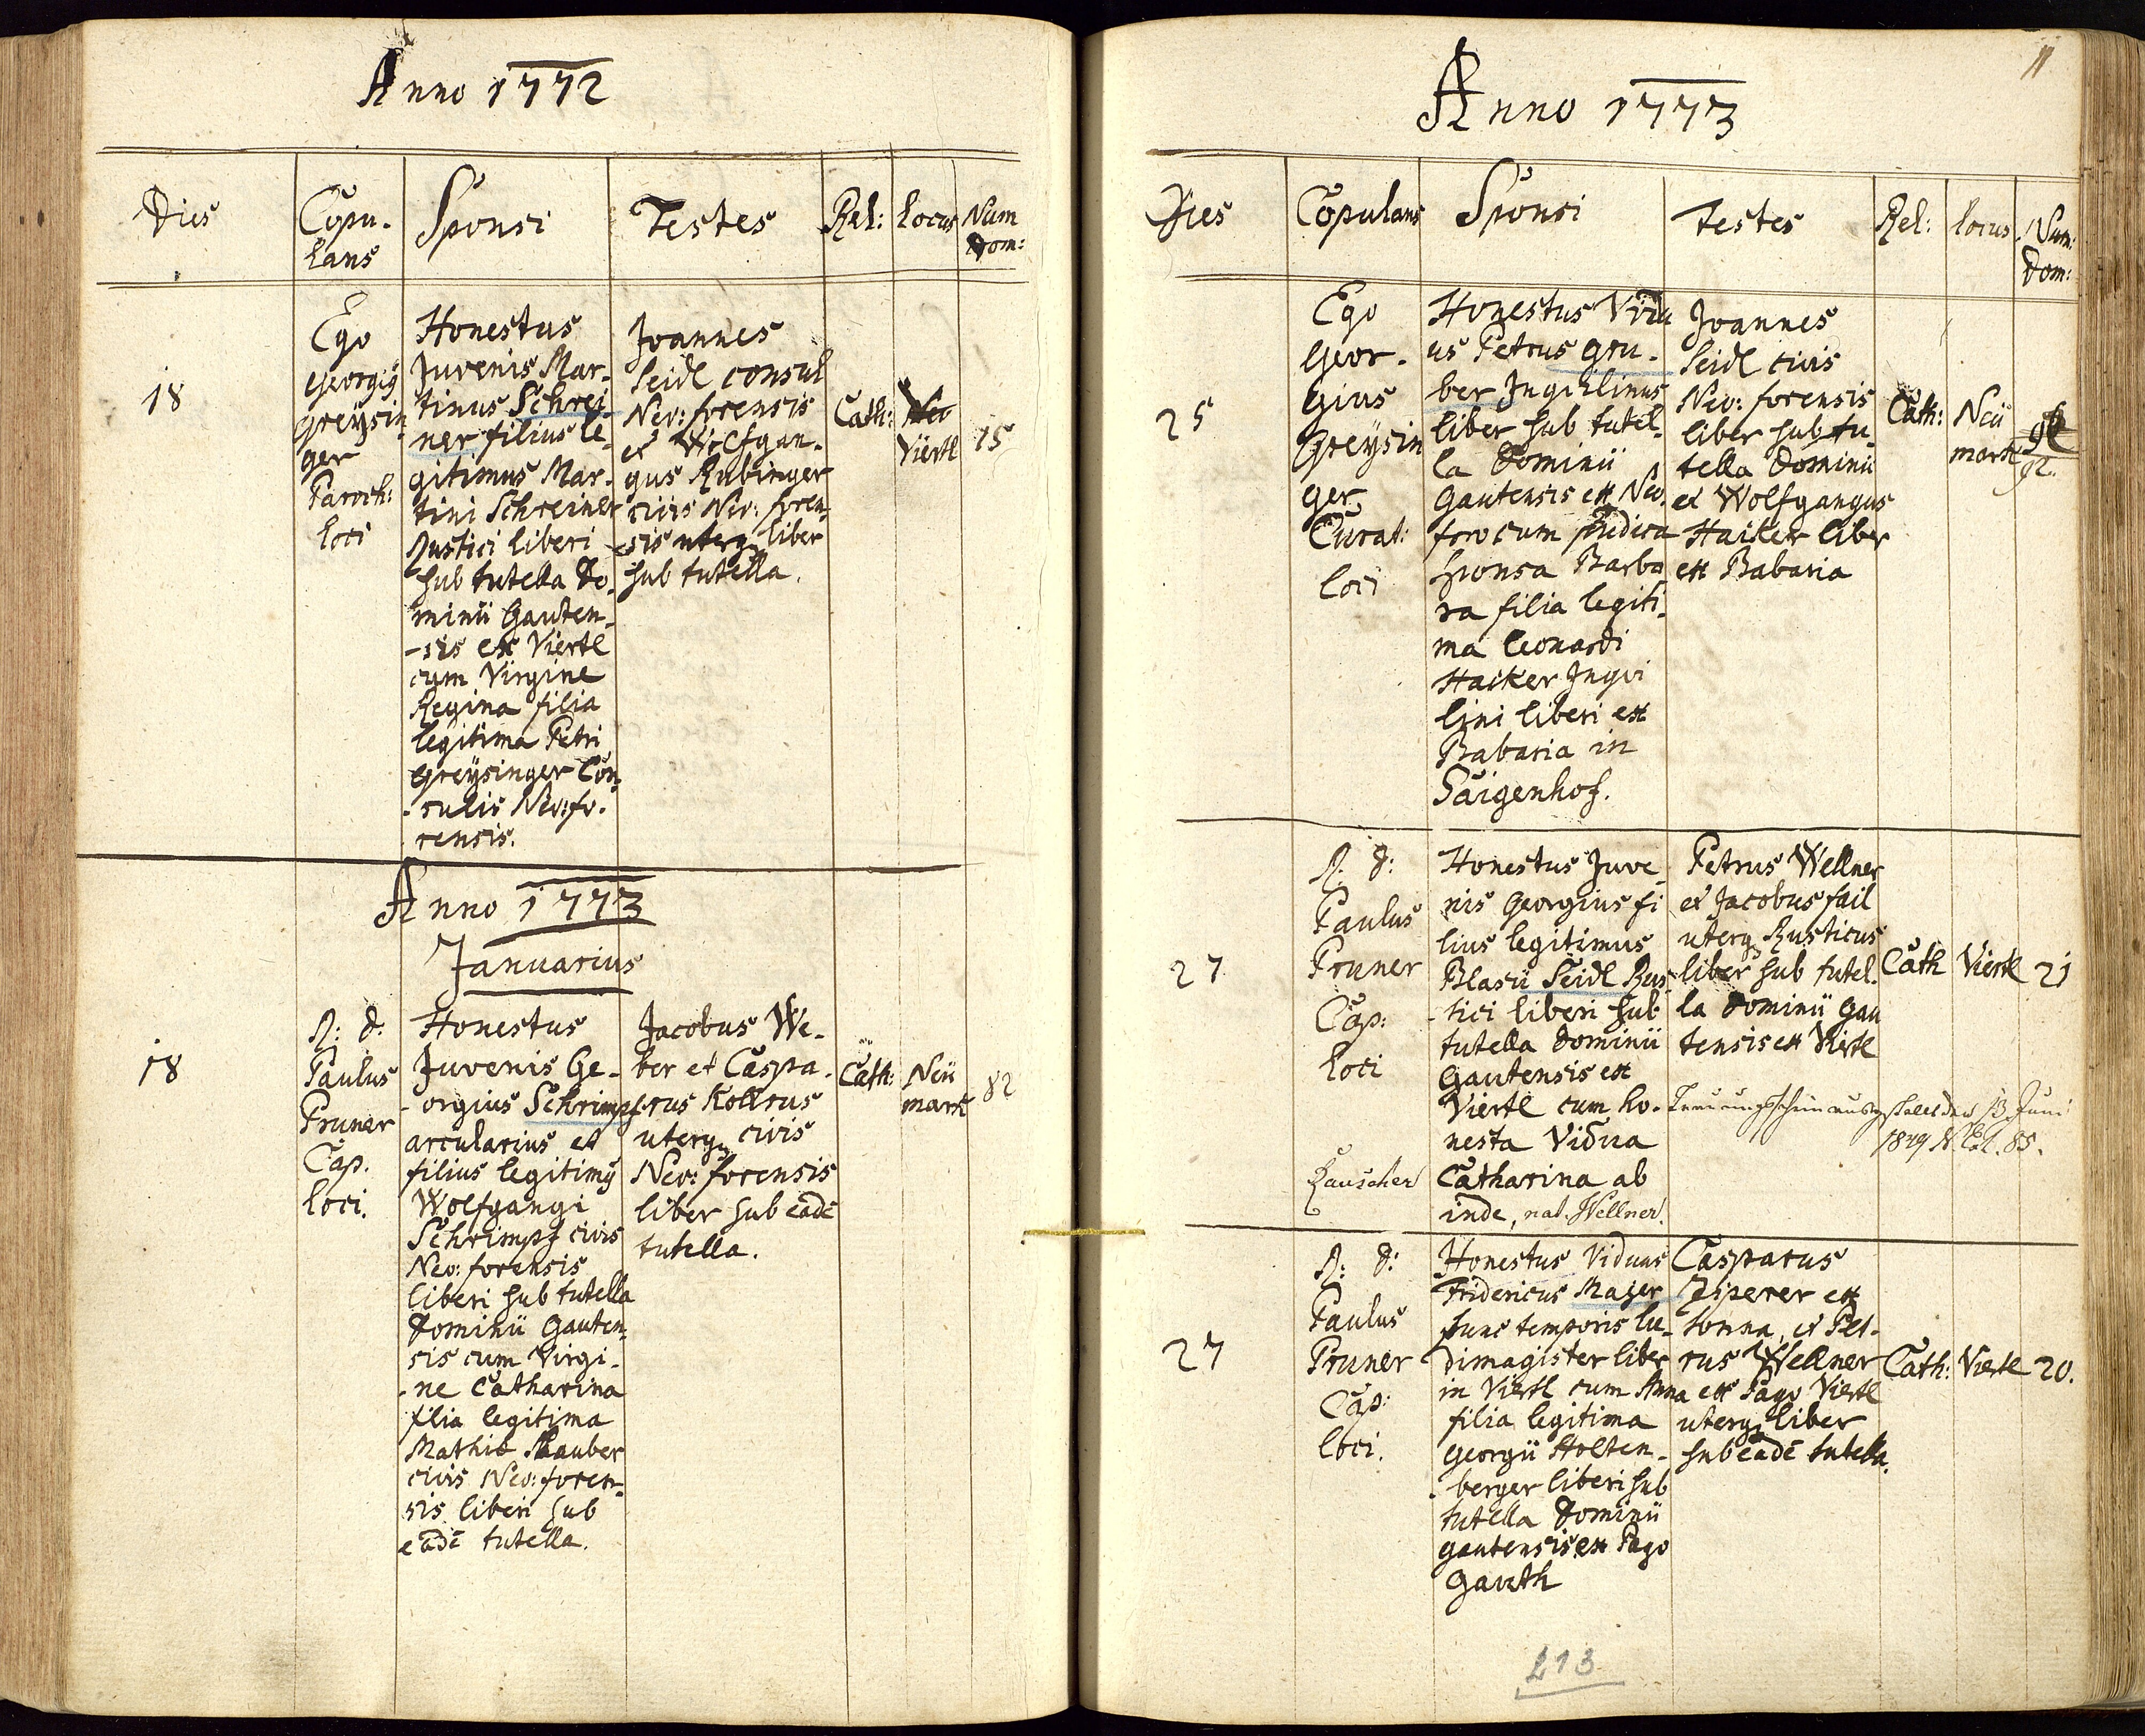 Anno 1772
Dies
Copu-
lans
Sponsi
Testes
Rel:
Locus
Num
Dom:
18
Ego
Georgiỹ
Greÿsin
ger
Paroch:
loci
Honestus
Juvenis Mar-
tinus Schrei-
ner filius le-
gitimus Mar-
tini Schreiner
Rustici liberi
sub tutella Do-
minii Gauten-
-sis ex Viertl
cum Virgine
Regina filia
legitima Petri
Greÿsinger Con-
-sulis Neo:fo-
rensis.
Joannes
Seidl consul
Neo: forensis
et Wolfgan-
gus Rubinger
civis Neo: foren-
sis uterq liber
sub tutella.
Cath:
Neo
Viertl
15
Anno 1773
Januarius
18
R: d:
Paulus
Pruner
Cap.
loci.
Honestus
Juvenis Ge-
-orgius Schrimpf
arcularius et
filius legitimỹ
Wolfgangi
Schrimpf civis
Neo: forensis
liberi sub tutella
Dominii Gauten-
sis cum Virgi-
-ne Catharina
filia legitima
Mathie Stauber
civis Neo: foren-
sis liberi sub
eadē tutella.
Jacobus We-
ber et Caspa-
rus Kollrus
uterq civis
Neo: forensis
liber sub eadē
tutella.
Cath:
Neü
mark
82
11
Anno 1773
Dies
Copulans
Sponsi
Testes
Rel:
locus
Num:
Dom:
25
Ego
Geor-
gius
Greÿsin
ger
Curat:
loci
Honestus Vidu
us Petrus Gru-
ber Inquilinus
liber sub tutel-
la Dominii
Gautensis ex Neo
foro cum pudica
sponsa Barba
ra filia legiti-
ma Leonardi
Haiker Inqui
lini liberi ex
Babaria in
Säigenhof.
Joannes
Seidl civis
Neo: forensis
liber sub tu-
tella Dominii
et Wolfgangus
Haiker liber
ex Babaria
Cath:
Neü
mark
92.
27
R: d:
Paulus
Pruner
Cap:
loci
Honestus Juve
nis Georgius fi
lius legitimus
Blasii Seidl Rus-
-tici liberi sub
tutella Dominii
Gautensis ex
Viertl cum ho-
nesta Vidua
Catharina ab
inde, nat. Wellner.
Petrus Wellner
et Jacobus fail
uterq Rusticus
liber sub tutel-
la Dominii Gau
tensis ex Viertl
Cath
Viertl
21
Trauungsschein ausgestellt den 13 Juni
1849 N. Ex. 85.
27
R: d:
Paulus
Pruner
Cap:
loci.
Honestus Viduus
Fridericus Majer
hunc temporis lu-
dimagister liber
in Viertl cum Anna
filia legitima
Georgii Holten-
-berger liberi sub
tutella Dominii
Gautensis ex Pago
Gauth
Casparus
Ziperer ex
Sonna, et Pet-
rus Wellner
ex Pago Viertl
uterq liber
sub eadē tutella.
Cath:
Viertl
20.
213